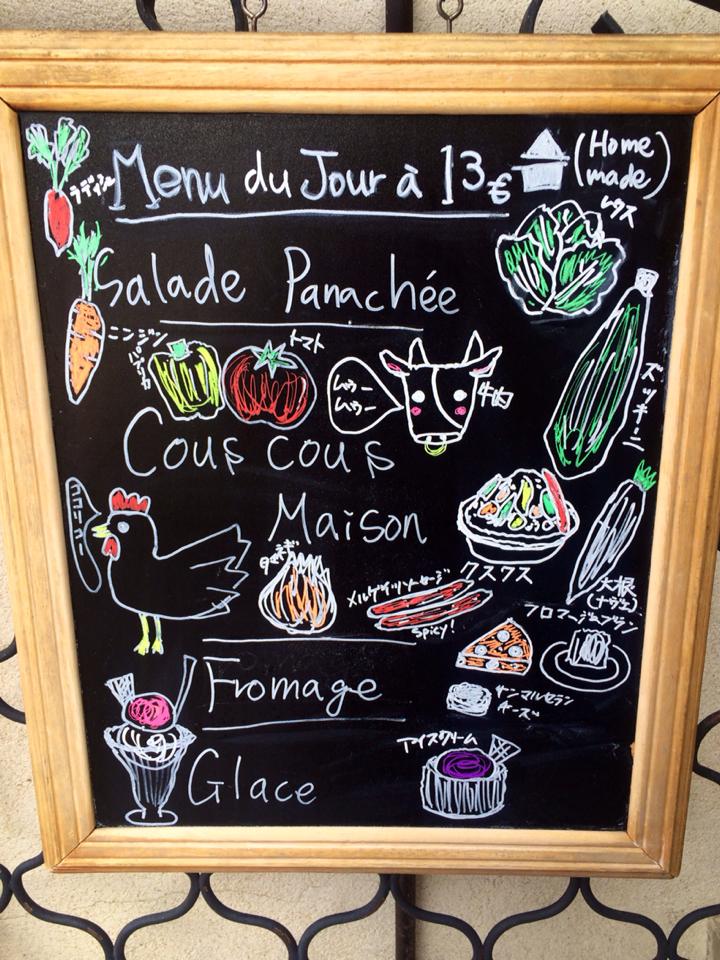 Menu du Jour à 13€
(Home made)
ラディッシュ
レタス
Salade Panachée
ニンジン
パプリカ
トマト
ムゥー
ムゥー
牛肉
ズッキーニ
Cous cous
Maison
ココリコー
タマネギ
メルゲイツソーセージ
spicy!
クスクス
大根
(ナヴェ)
フロマージュブラン
Fromage
サンマルセラン
チーズ
Glace
アイスクリーム